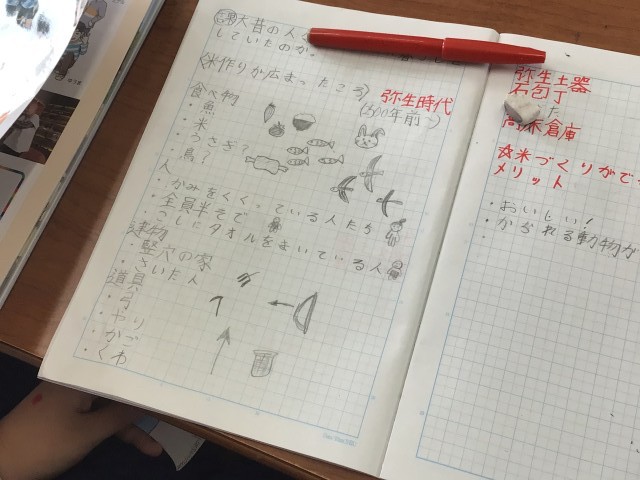 大昔の人
していたのか。
〈米作りが広まったころ〉
弥生時代
食べ物
・魚
・米
・うさぎ?
・鳥?
人
・かみをくくっている人たち
・全員半そで
・こしにタオルをまいている人
建物
・竪穴の家
・さいた人
道具
・弓
・やり
・かご
・くわ
弥生土器
石包丁
高床倉庫
☆米づくりがで
メリット
・おいしい!
・かぎれる動物が